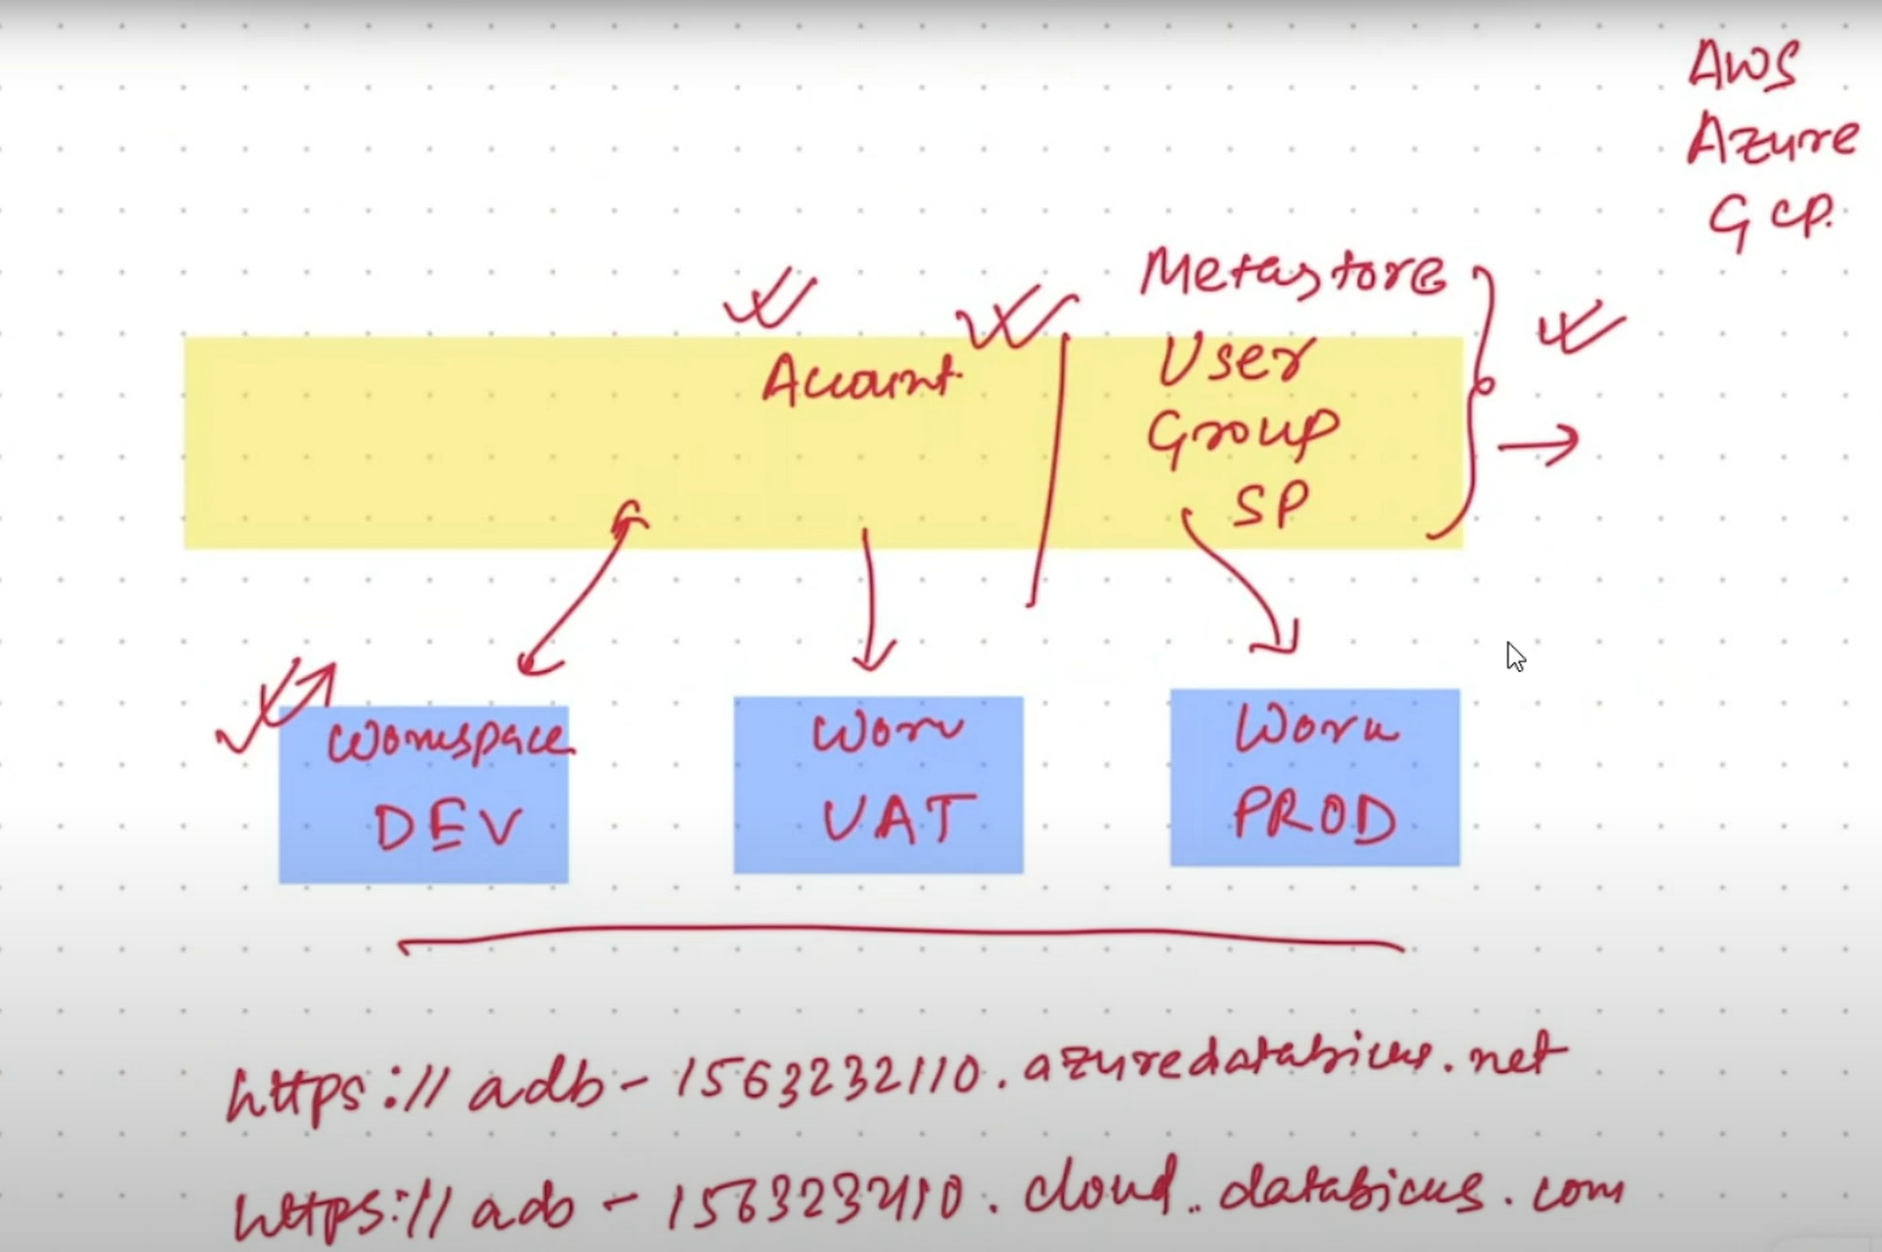 AWS
Azure
GCP.
Metastore
Account.
User
Group
SP
Workspace
DEV
Work
UAT
Work
PROD
https://adb-1563232110.azuredatabricks.net
https://adb-1563232110.cloud.databricks.com